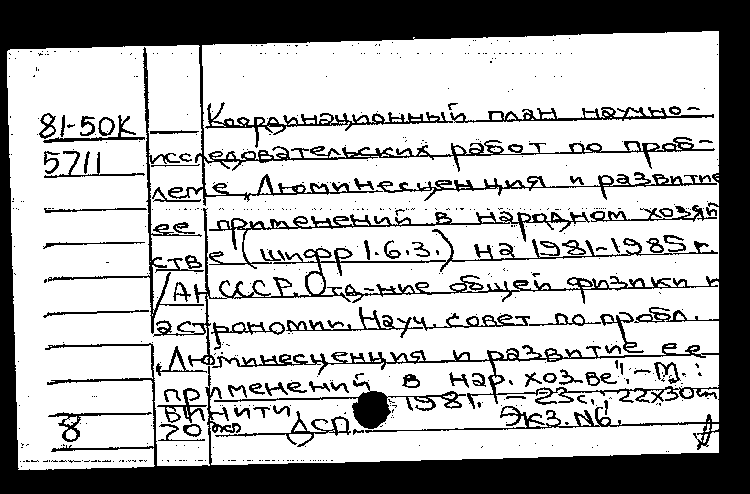 81-50К Координационный план научно-
5711 исследовательских работ по проб-
леме „Люминесценция и развитие
ее применений в народном хозяй
стве (шифр 1.6.3.) на 1981-1985 г.
/АН СССР. Отд-ние общей физики и
астрономии. Науч. совет по пробл.
„Люминесценция и развитие ее
применений в нар. хоз-ве". - М.:
ВИНИТИ, 1981. - 23 с.; 22х30 см
8 70 экз ДСП. Экз. N6.